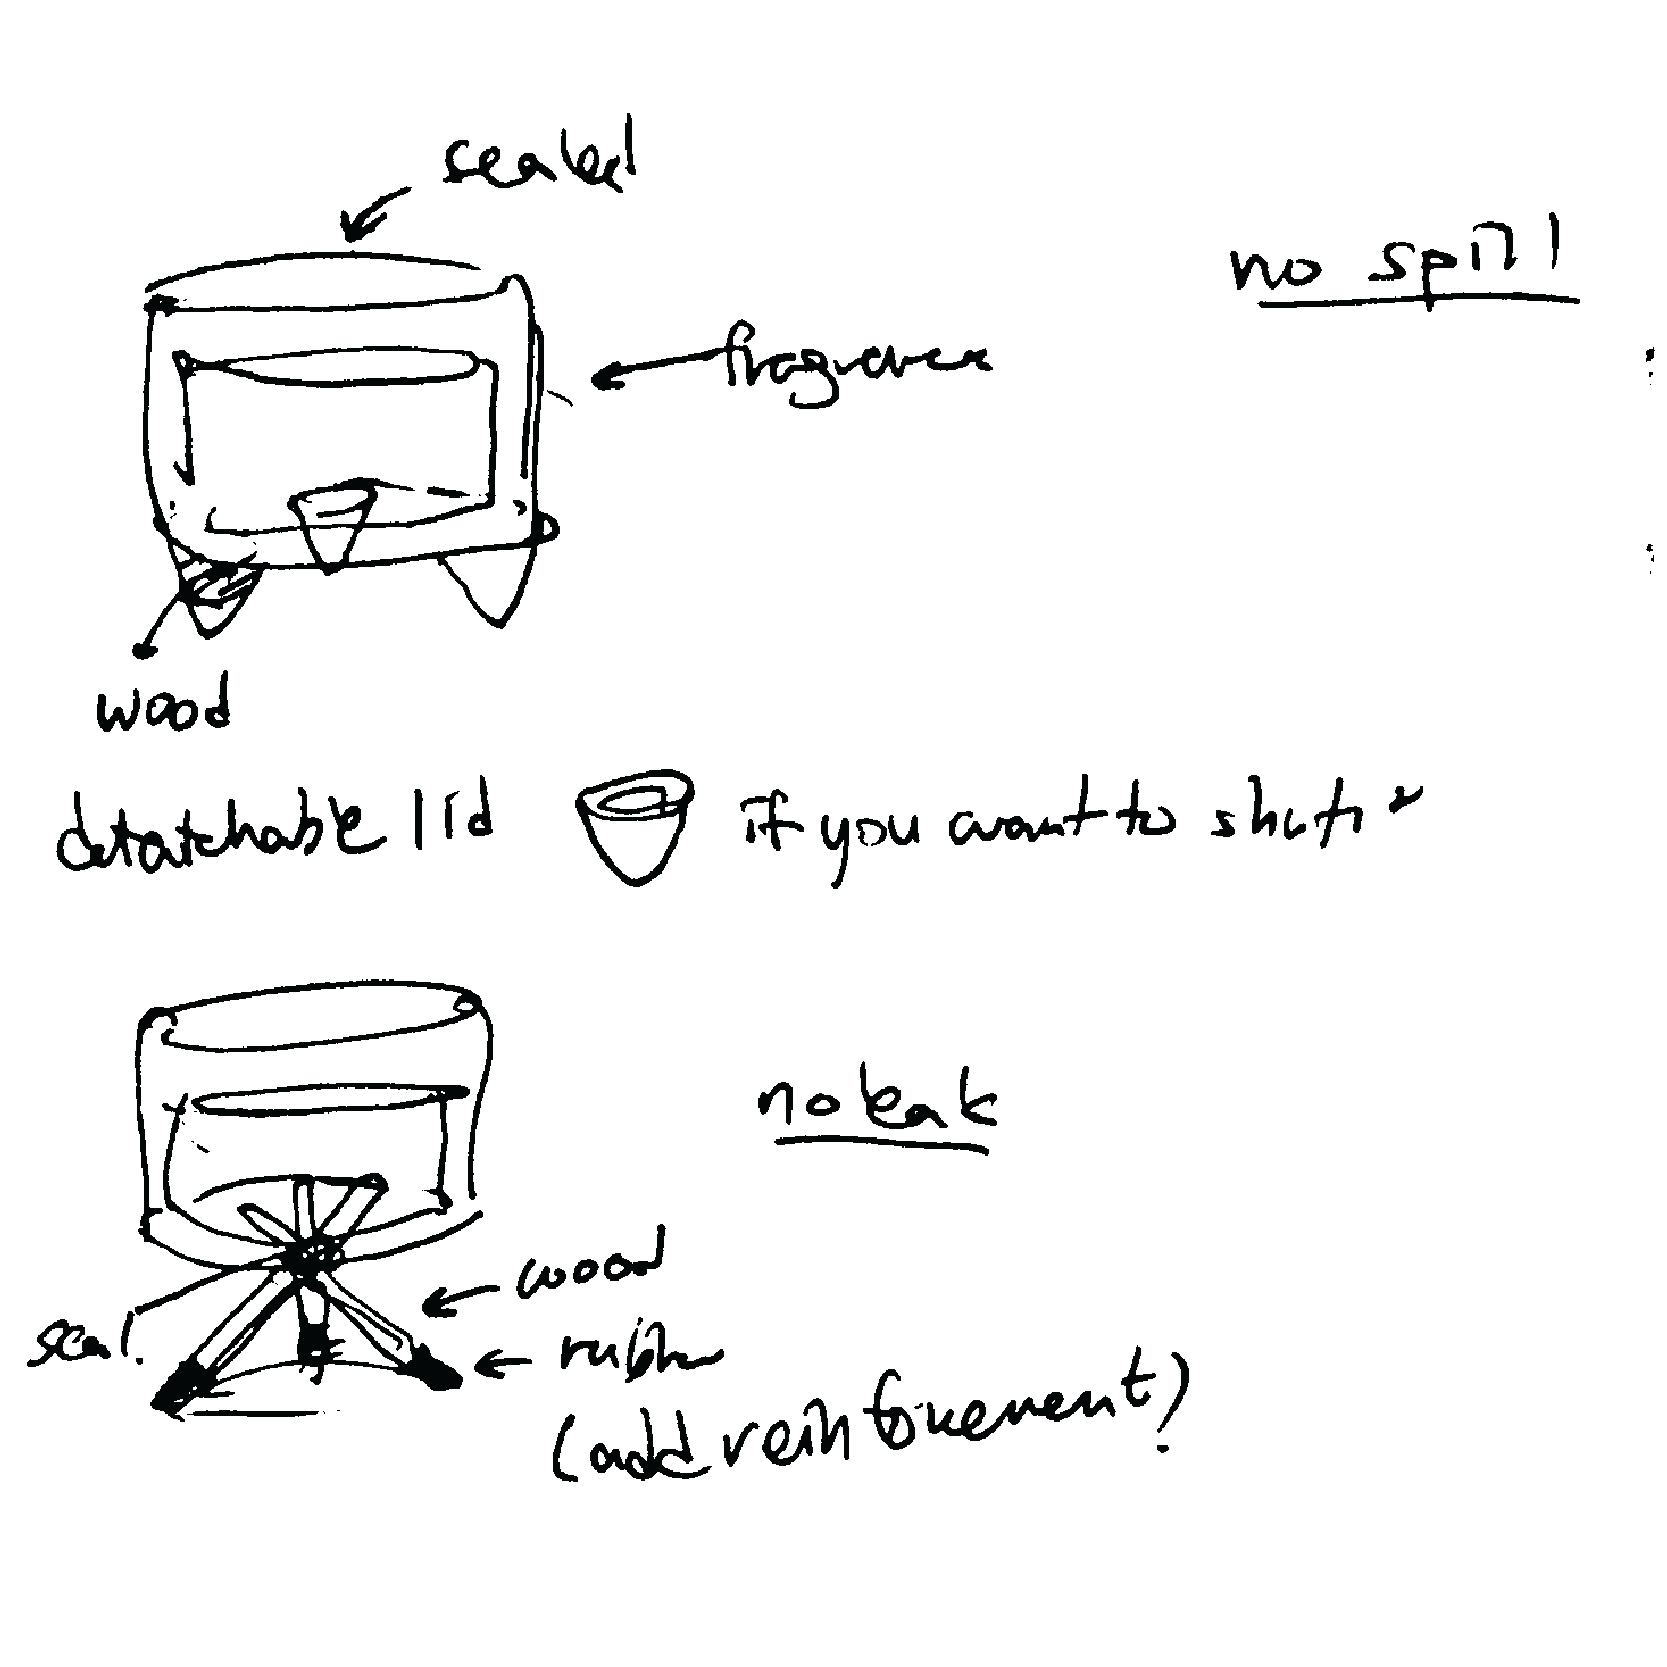 sealed
no spill
fragrance
wood
detatchable lid if you want to shut it
no leak
wood
seal.
rubber
(add reinforcement?)